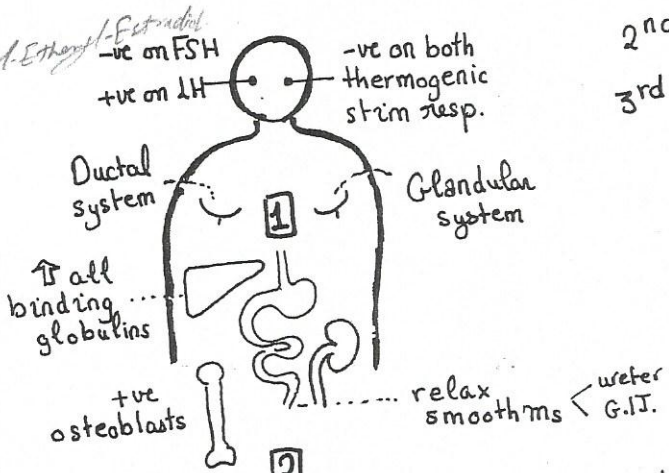 -Ethenyl-Estradiol
-ve on FSH
+ve on LH
-ve on both
thermogenic
stim resp.
2nd
3rd
Ductal
system
1
Glandular
system
⇑ all
binding
globulins
+ve
osteoblasts
relax
smooth ms
ureter
G.I.T.
2